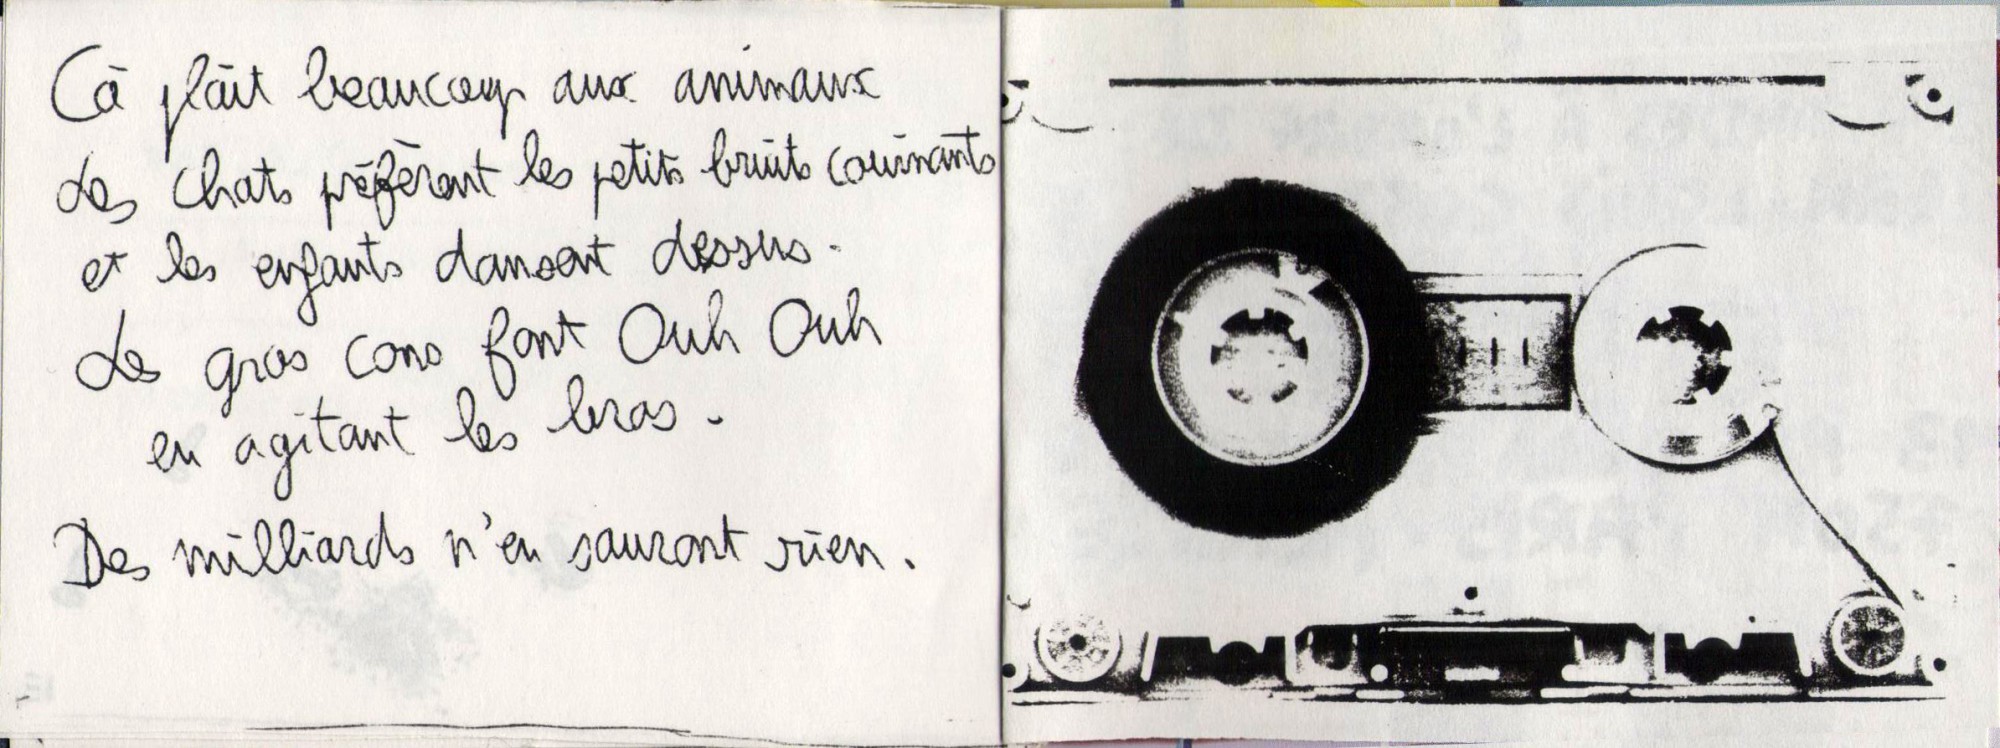 Cà plâit beaucoup aux animaux
Les chats préfèrent les petits bruits couinants
et les enfants dansent dessus.
Les gros cons font Ouh Ouh
en agitant les bras.
Des milliards n'en sauront rien.